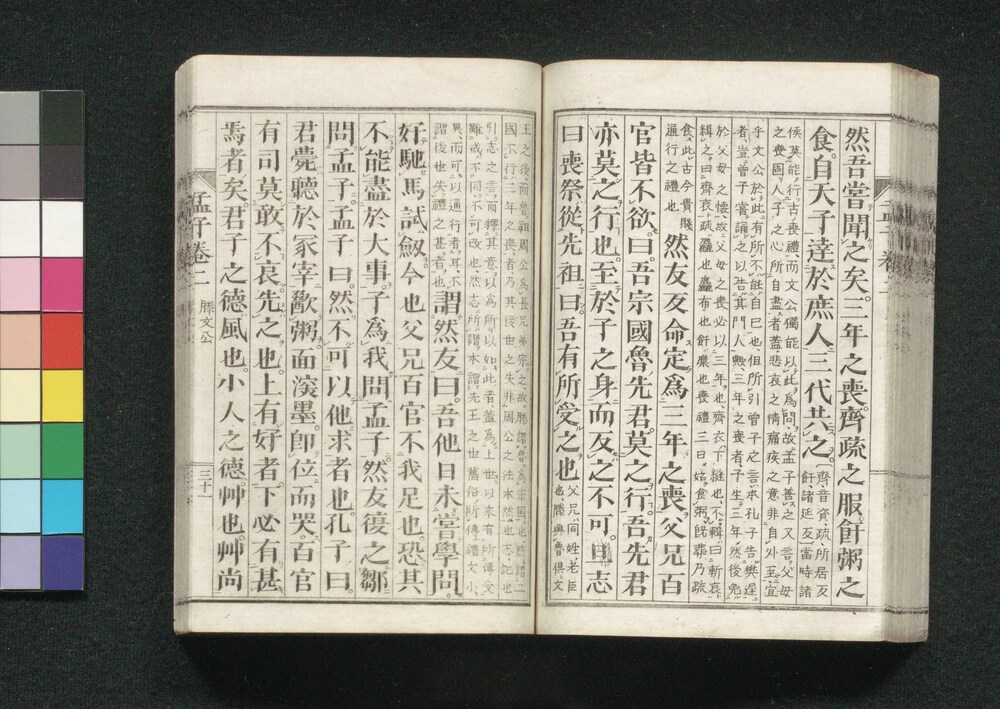 然吾嘗聞之矣。三年之喪。齊疏之服。飦粥之
食。自天子達於庶人。三代共之。
齊音資疏所居反
飦諸延反○當時諸
侯莫能行古喪禮、而文公獨能以此爲問、故孟子善之、又言、父母
之喪固人子之心所自盡者、蓋悲哀之情痛疾之意、非自外至、宜
乎文公於此有所不能自已也、但所引曾子之言、本孔子告樊遲
者、豈曾子嘗誦之以告其門人歟、三年之喪者、子生三年、然後免
於父母之懷、故父母之喪必以三年也、齊衣下縫也、不緝曰斬衰、
緝之曰齊衰、疏麤也、麤布也、飦糜也、喪禮三日始食粥、既葬乃疏
食、此古今貴賤
通行之禮也
然友反命。定爲三年之喪。父兄百
官皆不欲。曰。吾宗國魯先君。莫之行。吾先君
亦莫之行也。至於子之身而反之。不可。且志
曰。喪祭從先祖。曰。吾有所受之也
父兄、同姓老臣
也、滕與魯俱文
王之後、而魯祖周公爲長、兄弟宗之、故滕謂魯爲宗國也、然謂二
國不行三年之喪者、乃其後世之失、非周公之法本然也、志記也、
引志之言而釋其意、以爲所以如此者、蓋爲上世以來有所傳受、
雖或不同、不可改也、然志所謂、本謂先王之世、舊俗所傳禮文小
異、而可以通行者耳、不
謂後世失禮之甚者也
謂然友曰。吾他日未嘗學問。
好馳馬試劔。今也父兄百官不我足也。恐其
不能盡於大事。子爲我問孟子。然友復之鄒
問孟子。孟子曰。然。不可以他求者也。孔子曰。
君薨聽於冢宰。歠粥。面深墨。即位而哭。百官
有司莫敢不哀。先之也。上有好者。下必有甚
焉者矣。君子之德風也。小人之德艸也。艸尚
孟子卷二 滕文公